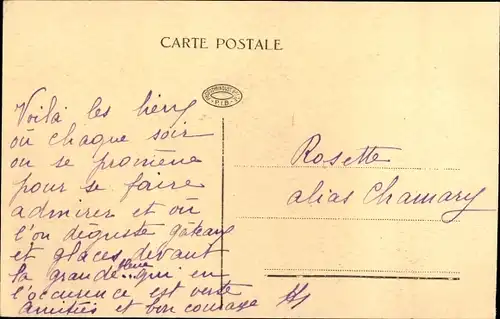 CARTE POSTALE
P.I.B.
Voilà les liens
où chaque soir
on se promène
pour se faire
admirer et où
l'on déguste gâteaux
et glaces devant
la grande bleue... qui en
l'occurence est verte
Amitiés et bon courage
Rosette
alias Chamary